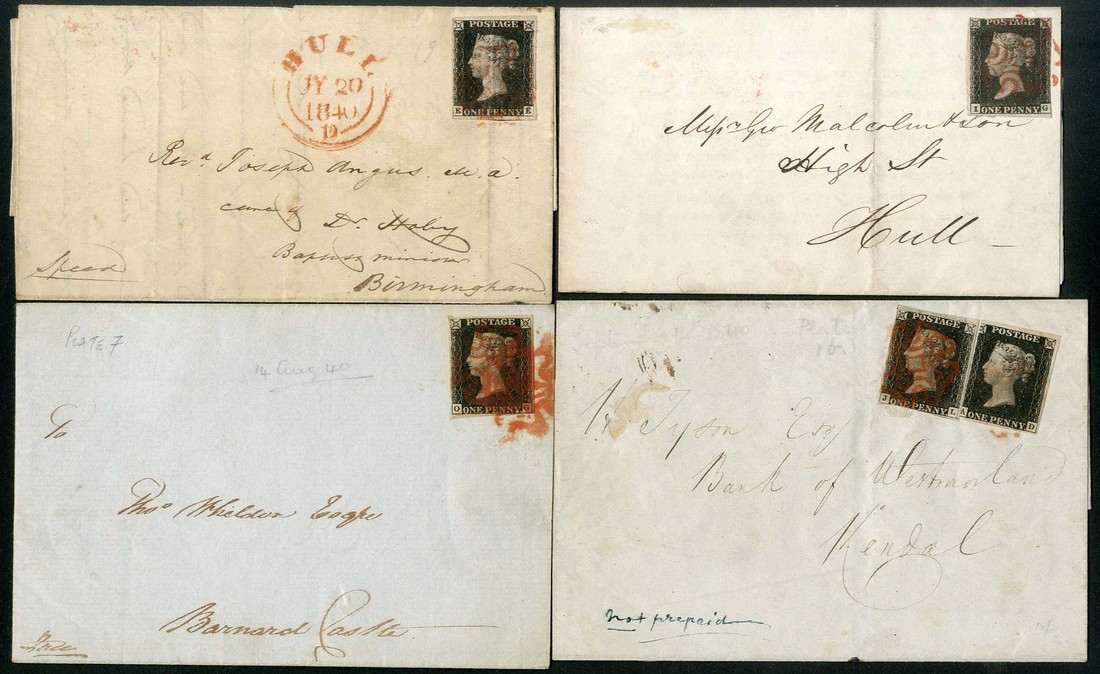 HULL
JY 20
1840
D
POSTAGE
E ONE PENNY E
Revd. Joseph Angus. M.a.
care of
Dr. Hoby
Baptist minister
Birmingham
Speed
POSTAGE
I ONE PENNY G
Messrs Geo Malcolm & Son
High St
Hull
PLATE 7
14 Aug 40
POSTAGE
O ONE PENNY G
To
Thos Wheldon Esqre
Barnard Castle
Plate
1b.
POSTAGE
J ONE PENNY L
POSTAGE
A ONE PENNY D
Tyson Esq
Bank of Westmorland
Kendal
not prepaid